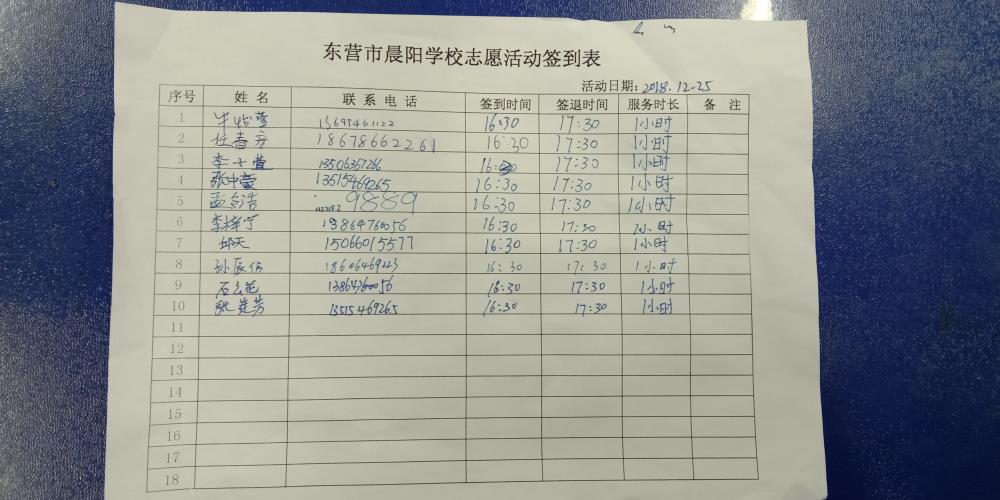 东营市晨阳学校志愿活动签到表
活动日期：2018.12-25
序号 姓名 联系电话 签到时间 签退时间 服务时长 备注
1 牛怡萱 13695461122 16:30 17:30 1小时
2 任春彦 18678662261 16:30 17:30 1小时
3 李子萱 13506367266 16:30 17:30 1小时
4 张中豪 13615469265 16:30 17:30 1小时
5 孟 浩 9889 16:30 17:30 1小时
6 李梓宁 13864760056 16:30 17:30 1小时
7 邱天 15066015577 16:30 17:30 1小时
8 孙辰佑 18606469223 16:30 17:30 1小时
9 16:30 17:30 1小时
10 张 芳 13515469265 16:30 17:30 1小时
11
12
13
14
15
16
17
18